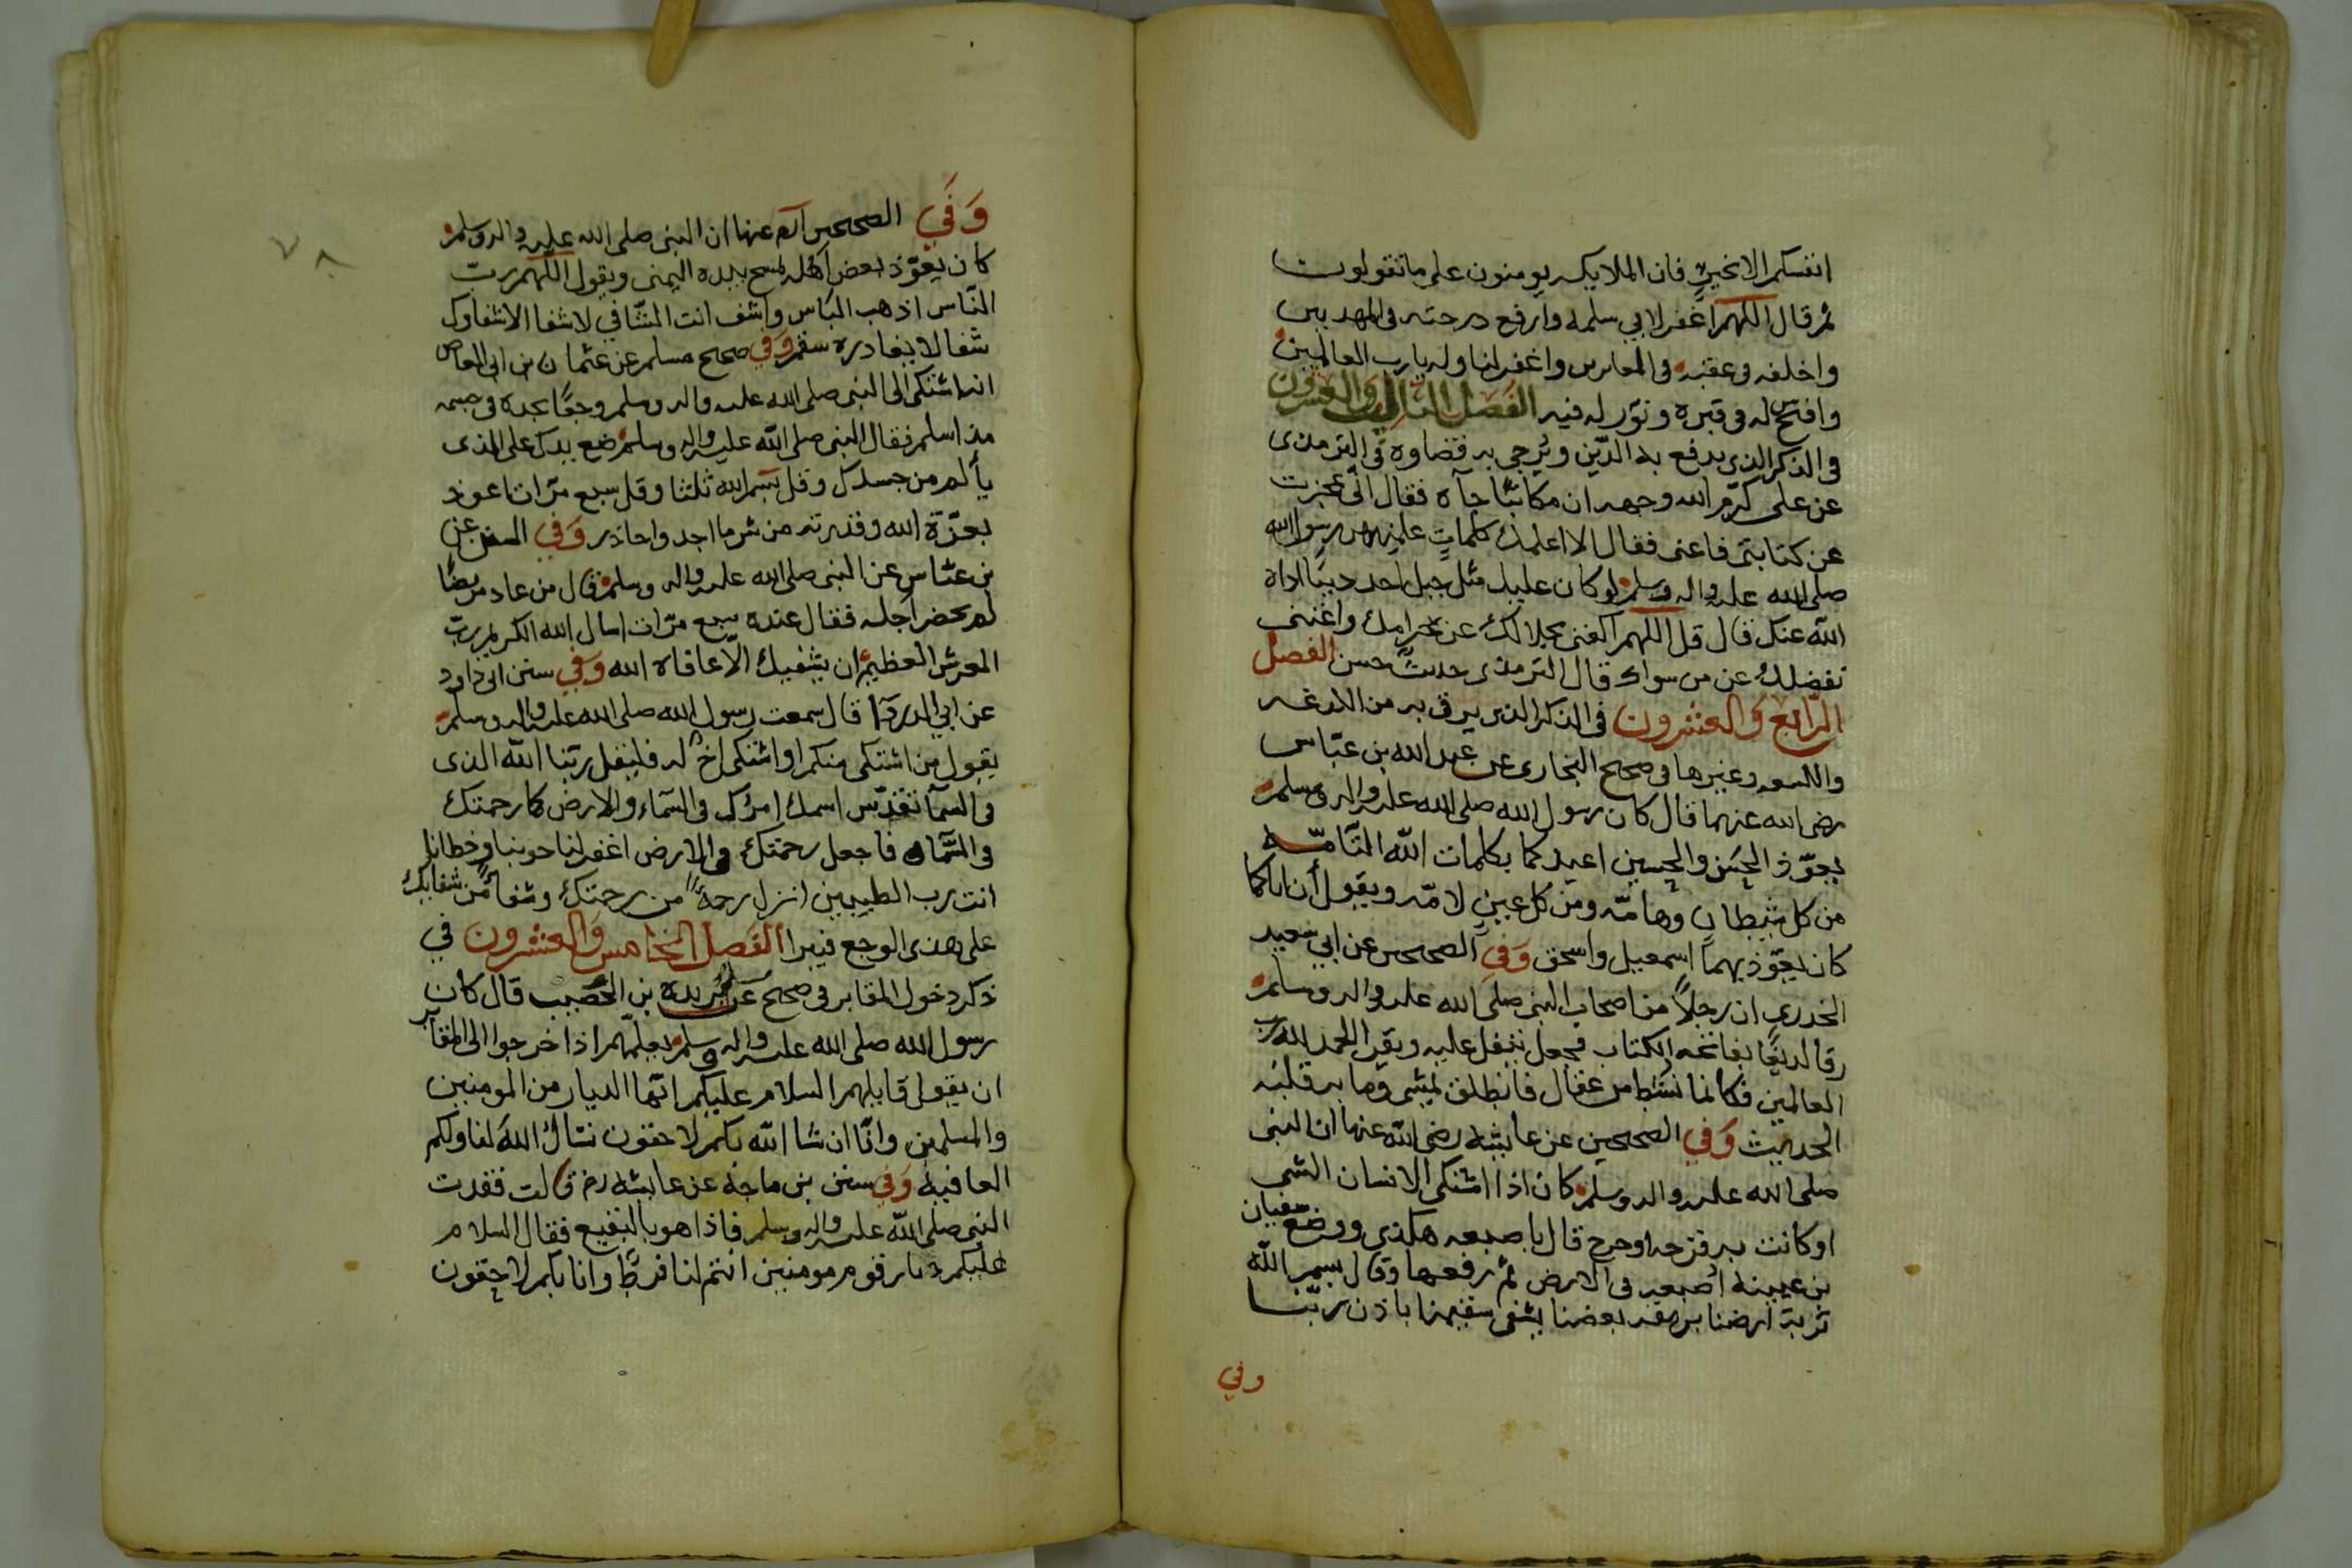 انفسكم الا بخير فان الملايكه يومنون على ما تقولون
ثم قال اللهم اغفر لابي سلمه وارفع درجته في المهديين
واخلفه في عقبه في الغابرين واغفر لنا وله يا رب العالمين
وافتح له في قبره ونوّر له فيه الفصل الثالث والعشرون
في الذكر الذي يدفع به الدّين ويُرجى به قضاوه في الترمذي
عن على كرّم الله وجهه ان مكاتبًا جآه فقال انّى عجزت
عن كتابتى فاعنى فقال الا اعلمك كلماتٍ علمنيهن رسول الله
صلى الله عليه واله وسلم لو كان عليك مثل جبل احد دينًا اداه
الله عنك قال قل اللهم اكفنى بحلالك عن حرامك واغننى
بفضلك عن من سواك قال الترمذى حديث حسن الفصل
الرّابع والعشرون في الذكر الذي يرقى به من اللدغه
واللسعه وغيرها في صحيح البخارى عن عبد الله بن عبّاس
رضى الله عنهما قال كان رسول الله صلى الله عليه واله وسلم
يعوّذ الحسن والحسين اعيذكما بكلمات الله التّامّه
من كل شيطان وهامّه ومن كل عين لامّه ويقول أن اباكما
كان يعوّذ بهما اسمعيل واسحق وَفي الصحيحين عن ابي سعيد
الخدري ان رجلاً من اصحاب النبى صلى الله عليه واله وسلم
رقا لديغًا بفاتحه الكتاب فجعل يتفل عليه ويقرا الحمد لله رب
العالمين فكانما نشط من عقال فانطلق يمشى وما به قلبه
الحديث وَفي الصحيحين عن عايشه رضى الله عنها ان النبى
صلى الله عليه واله وسلم كان اذا اشتكى الانسان الشى
او كانت به قزحه او جرح قال باصبعه هكذى ووضع سفيان
بن عيينه اصبعه في الارض ثم رفعها وقال بسم الله
تربة ارضنا بريقه بعضنا يشفى سقيمنا باذن ربّنا
وفي
وَفي الصحيحين عنها ان النبى صلى الله عليه واله وسلم
كان يعوّذ بعض اهله يمسح بيده اليمنى ويقول اللهم ربّ
النّاس اذهب الباس واشف انت الشّافي لا شفا الا شفاوك
شفا لا يغادره سقم وَفي صحيح مسلم عن عثمان بن ابى العاص
انه اشتكى الى النبى صلى الله عليه واله وسلم وجعًا يجده في جسمه
مذ اسلم فقال النبى صلى الله عليه واله وسلم ضع يدك على الذى
يألم من جسدك وقل بسم الله ثلثا وقل سبع مرّات اعوذ
بعزّة الله وقدرته من شر ما اجد واحاذر وَفي السنن عن
بن عبّاس عن النبى صلى الله عليه واله وسلم قال من عاد مريضًا
لم يحضر اجله فقال عنده سبع مرّات اسال الله الكريم ربّ
العرش العظيم ان يشفيك الّا عافاه الله وَفي سنن ابى داود
عن ابي الدردآ قال سمعت رسول الله صلى الله عليه واله وسلم
يقول من اشتكى منكم او اشتكى اخ له فليقل ربّنا الله الذى
في السمآ تقدّس اسمك امرك في السّماء والارض كما رحمتك
في السّماء فاجعل رحمتك في الارض اغفر لنا حوبنا وخطايانا
انت رب الطيبين انزل رحمةً من رحمتك وشفاً من شفايك
على هذى الوجع فيبرا الفصل الخامس والعشرون في
ذكر دخول المقابر في صحيح عن بريده بن الحُصيب قال كان
رسول الله صلى الله عليه واله وسلم يعلّمهم اذا خرجوا الى المقابر
ان يقول قايلهم السلام عليكم ايّها الديار من المومنين
والمسلمين وانّا ان شا الله بكم لاحقون نسأل الله لنا ولكم
العافيه وَفي سنن بن ماجه عن عايشه رض قالت فقدت
النبى صلى الله عليه واله وسلم فاذا هو بالبقيع فقال السلام
عليكم دار قوم مومنين انتم لنا فرط وانا بكم لاحقون
٧٨